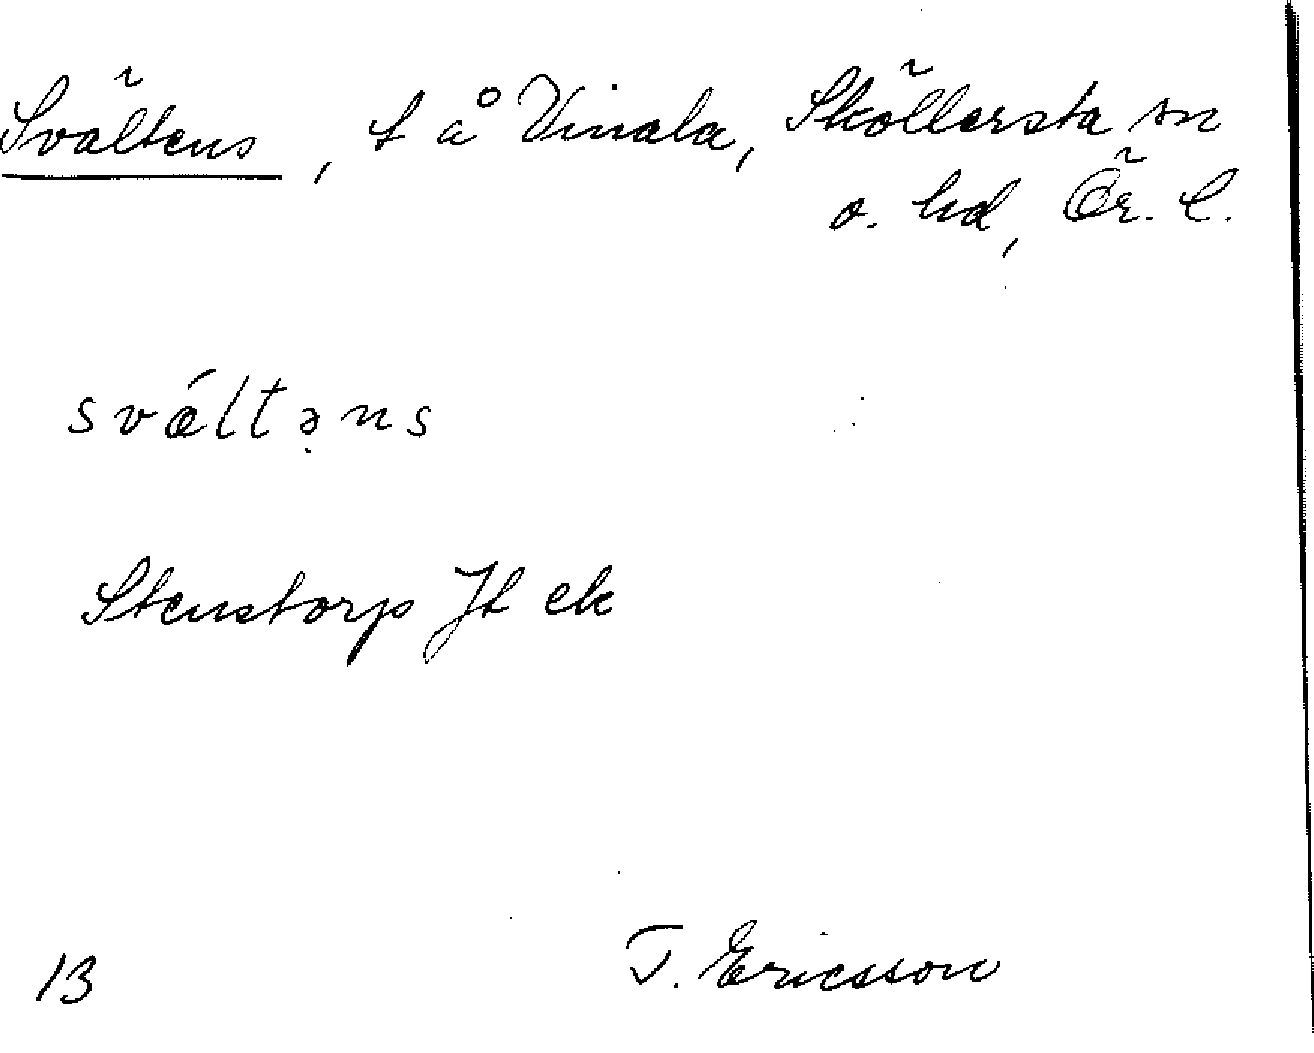 Svältens, t å Vinala, Sköllersta sn
o. hd, Ör. l.
svǽltə̣ns
Stenstorp Jt ek
13 T. Ericsson